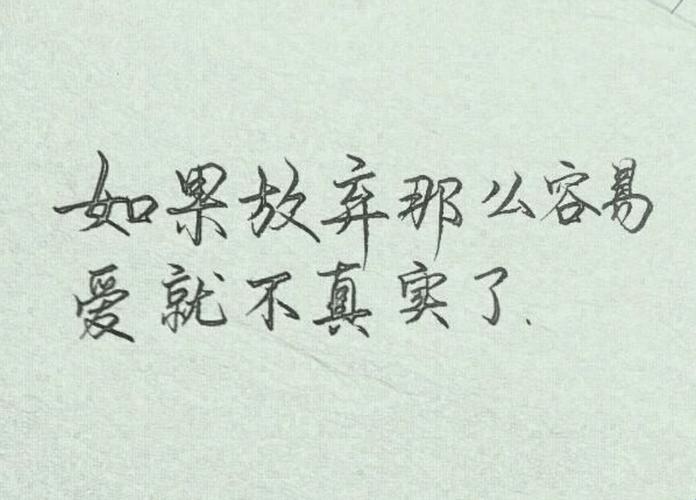 如果放弃那么容易
爱就不真实了.